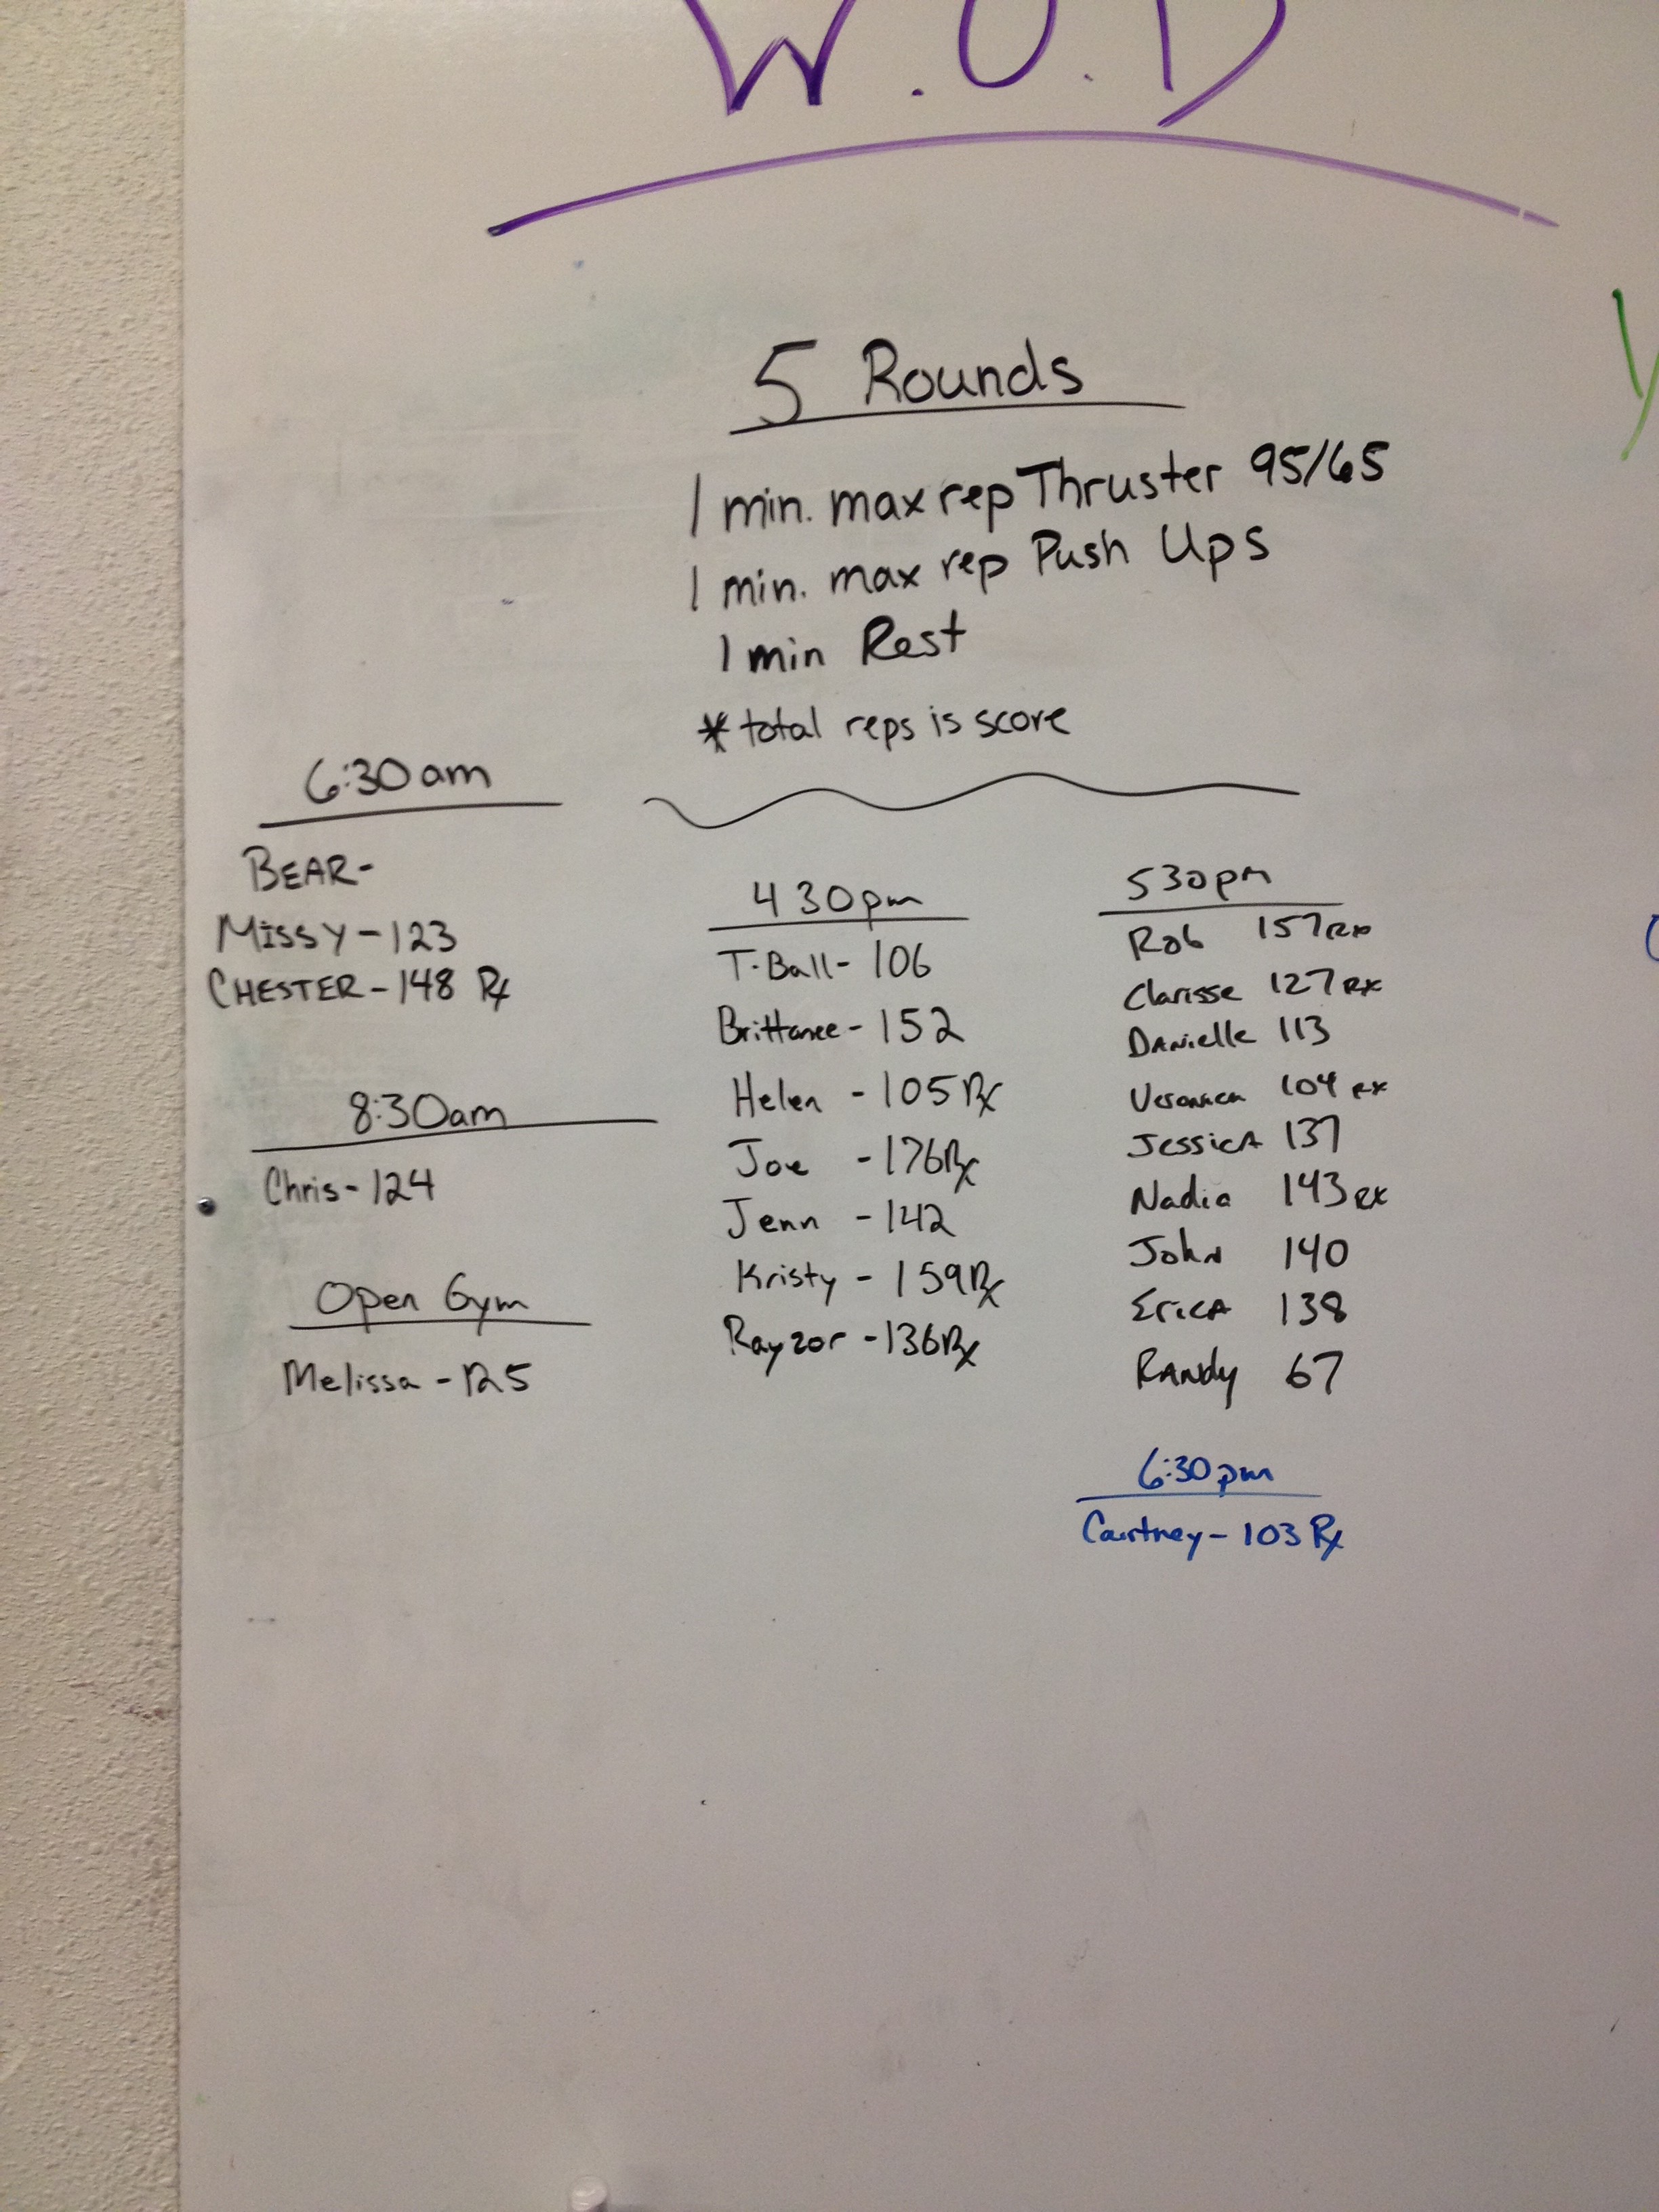 W.O.D
5 Rounds
1 min. max rep Thruster 95/65
1 min. max rep Push Ups
1 min Rest
*total reps is score
6:30am
BEAR-
MISSY-123
CHESTER-148 Rx
8:30am
Chris-124
Open Gym
Melissa-125
430pm
T-Ball-106
Brittanee-152
Helen -105Rx
Joe -176Rx
Jenn -142
Kristy -159Rx
Rayzor -136Rx
530pm
Rob 157RX
Clarisse 127RX
Danielle 113
Veronica 104 RX
Jessica 137
Nadia 143RX
John 140
Erica 138
Randy 67
6:30pm
Courtney-103 Rx